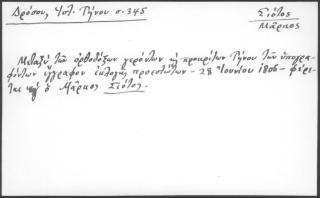 Δρόσου, Ἱστ. Τήνου σ. 345
Σιότος
Μάρκος
Μεταξὺ τῶν ὀρθοδόξων γερόντων ἢ προκρίτων Τήνου τῶν ὑπογρα-
ψάντων ἔγγραφον ἐκλογῆς προεστώτων - 28 Ἰουνίου 1806 - φέρε-
ται καὶ ὁ Μᾶρκος Σιότος.